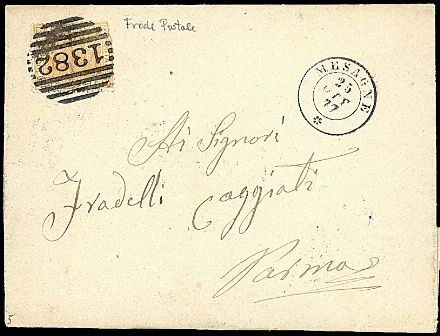 Frode Postale
1382
MESAGNE
25
77
Ai Signori
Fradelli Caggiati
Parma
5